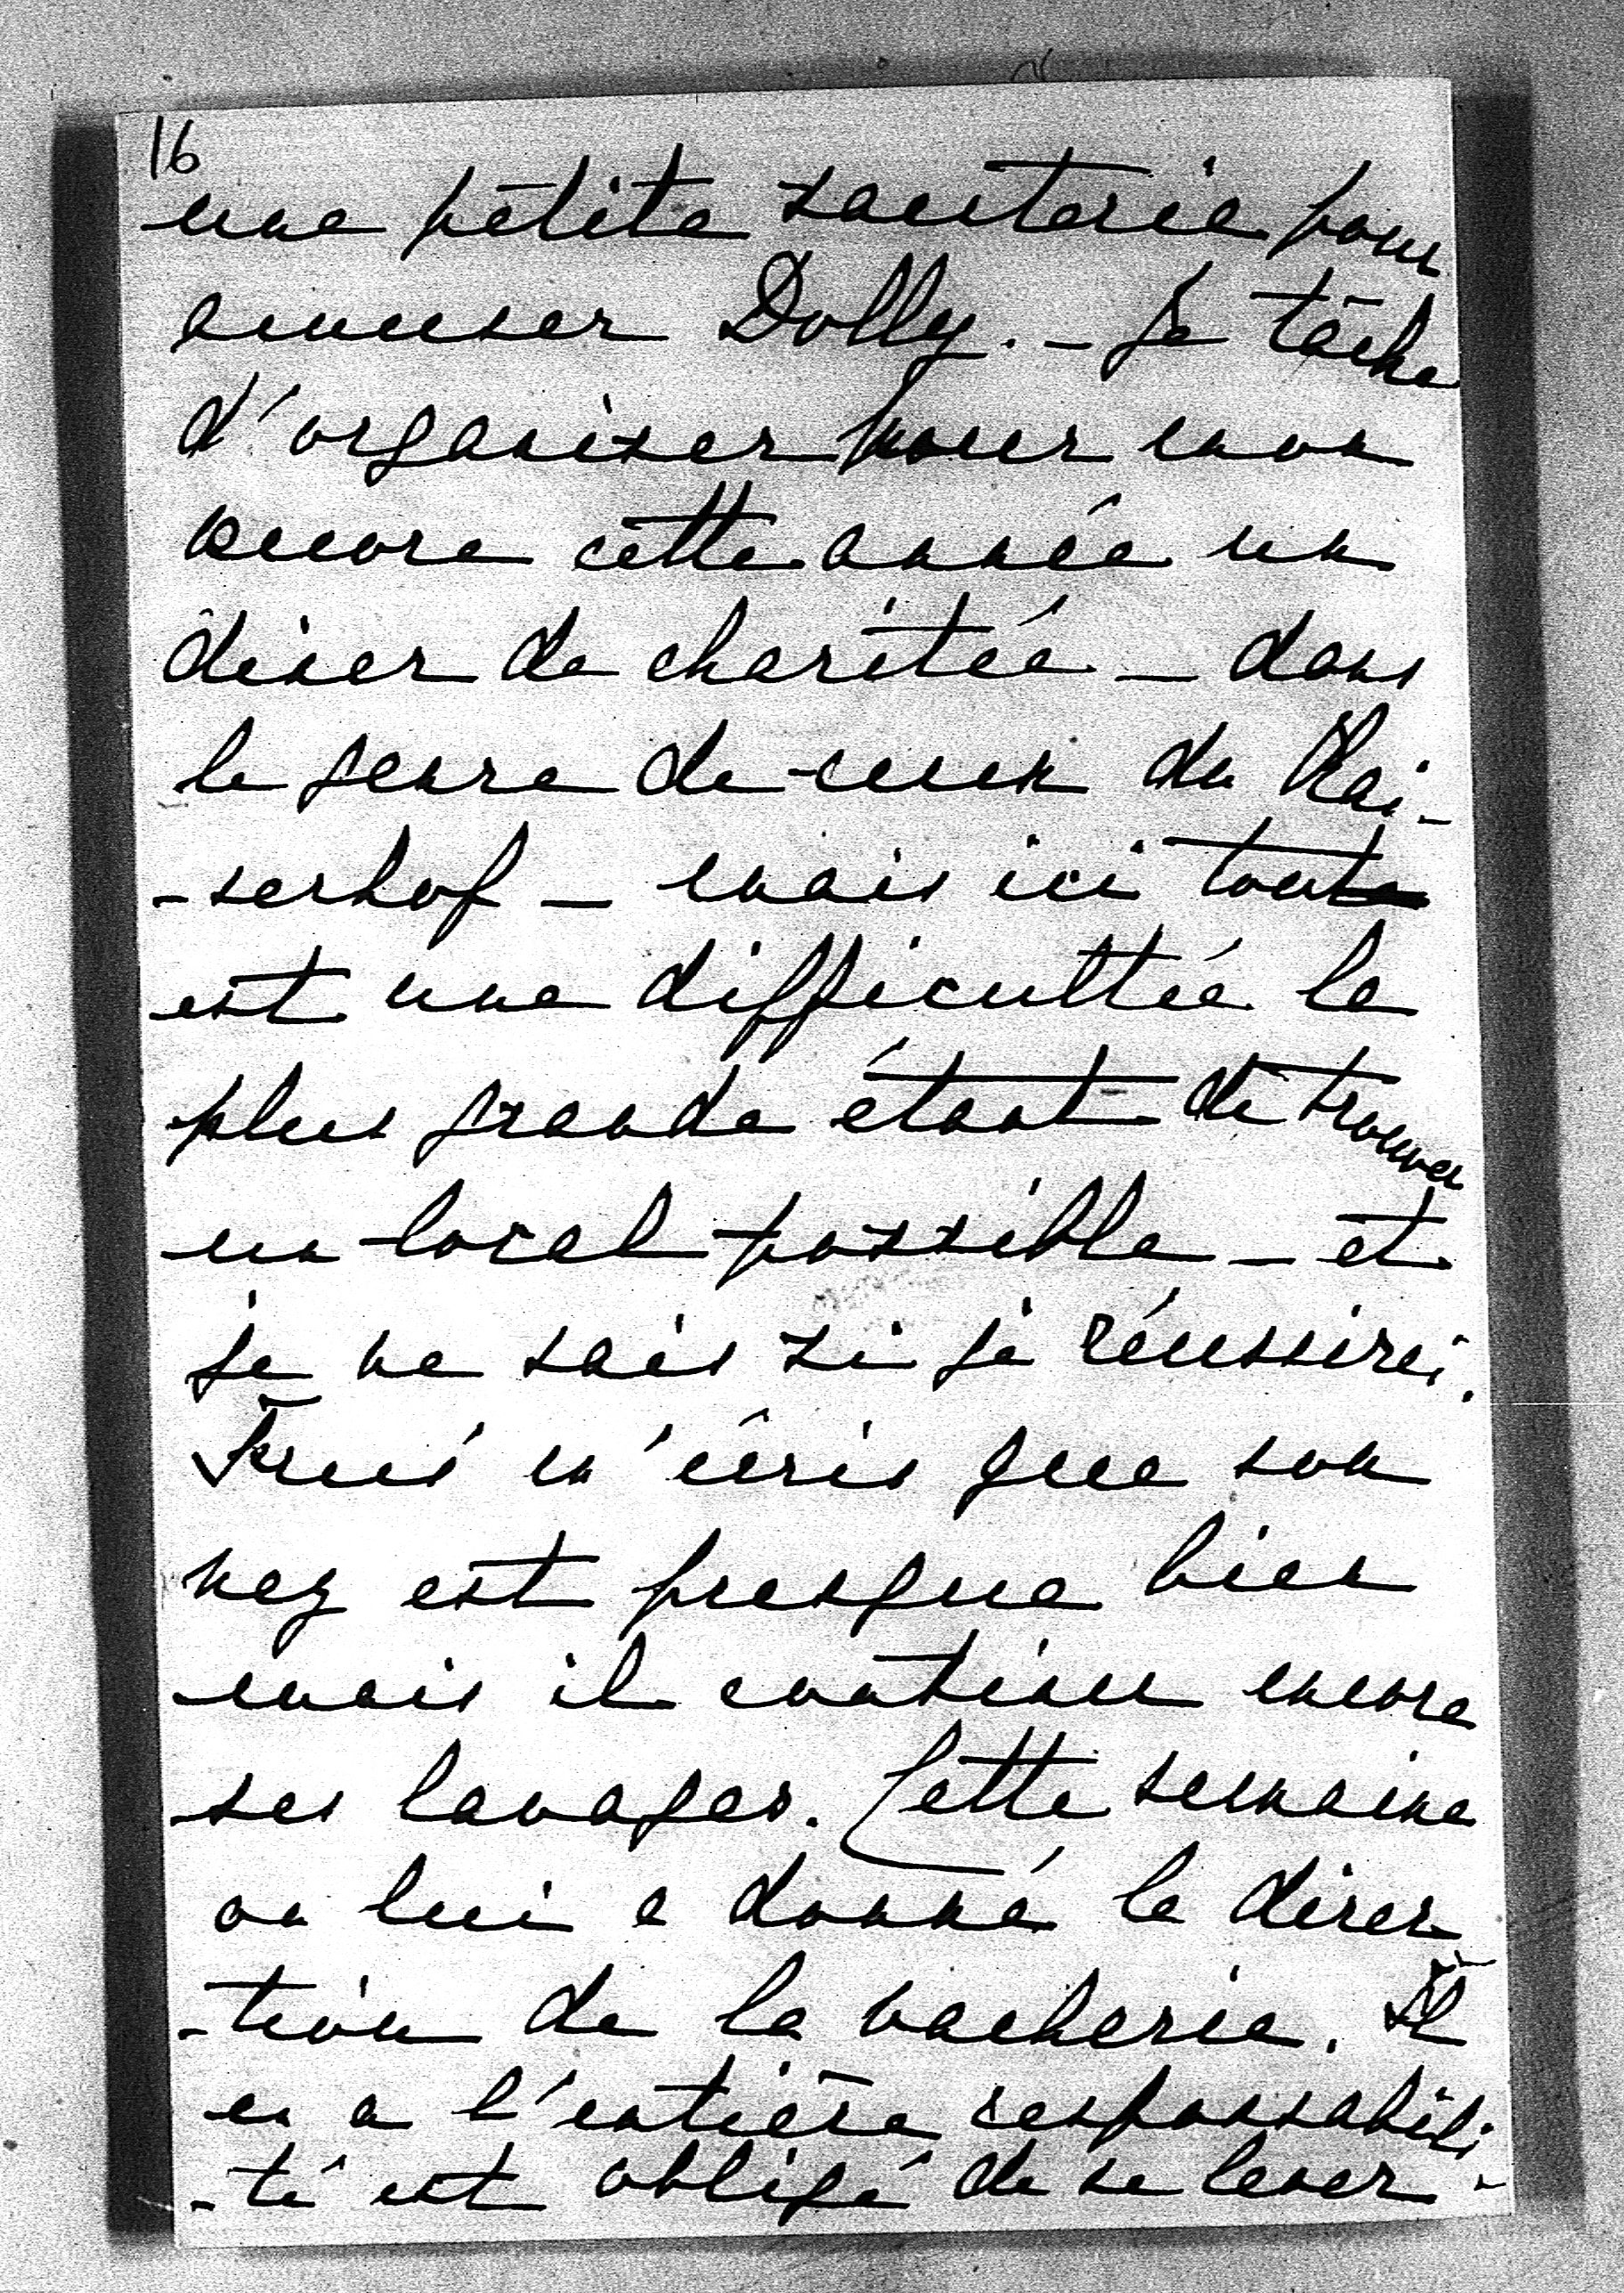 16
une petite sauterie pour
amuser Dolly. - Je tâche
d'organiser pour mon
œuvre cette année un
diner de charitée - dans
le genre de ceux du Kai-
-serhof - mais ici tout
est une difficultée la
plus grande étant de trouver
un local possible - et
je ne sais si je réussirai.
m'écris que son
nez est presque bien
mais il continu encore
ses lavages. Cette semaine
on lui a donné la direc
-tion de la vacherie. Il
en a l'entière responsabili-
-té et obligé de se lever -